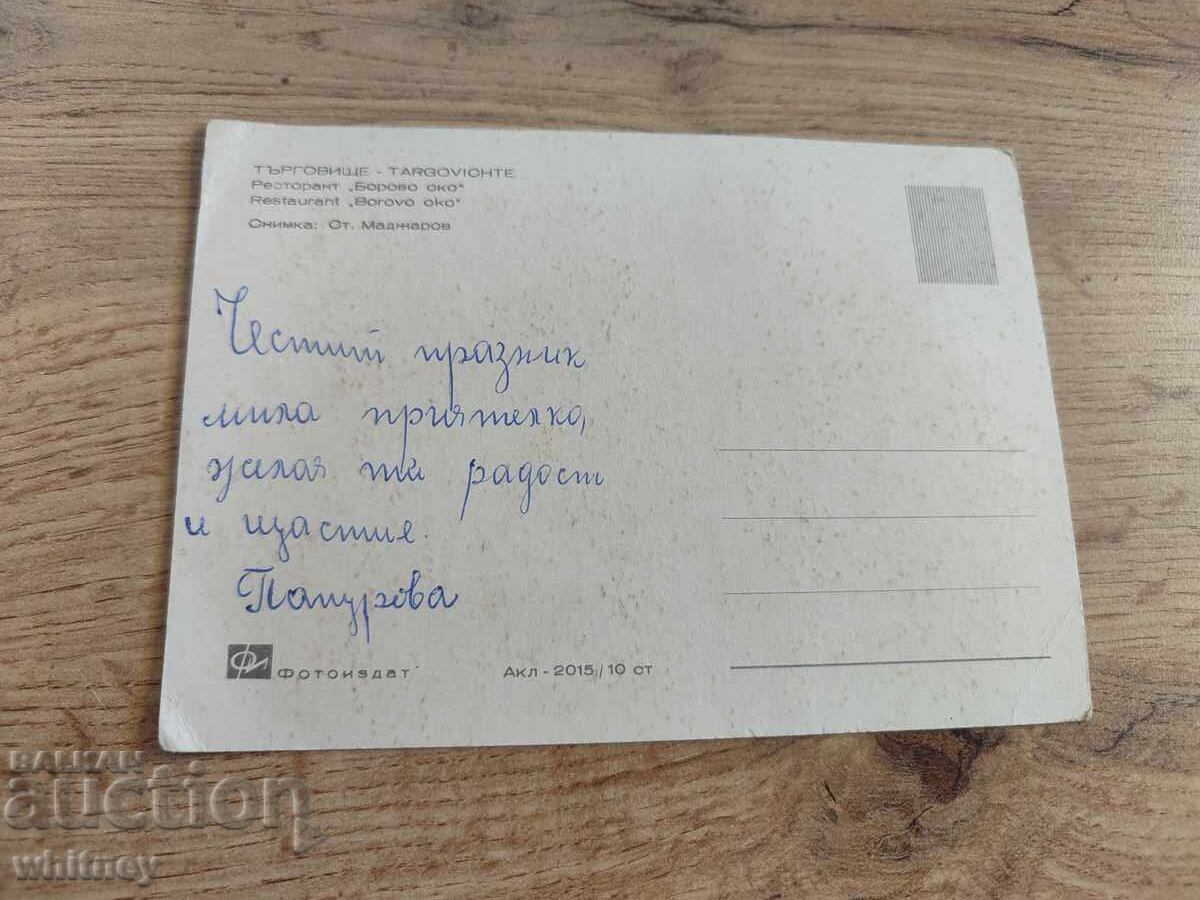 ТЪРГОВИЩЕ - TARGOVICHTE
Ресторант „Борово око“
Restaurant „Borovo oko“
Снимка: Ст. Маджаров
Честит празник
мила приятелко,
желая ти радост
и щастие.
Папурова
ФИ ФОТОИЗДАТ
Акл - 2015 / 10 ст
BALKAN
auction
whitney